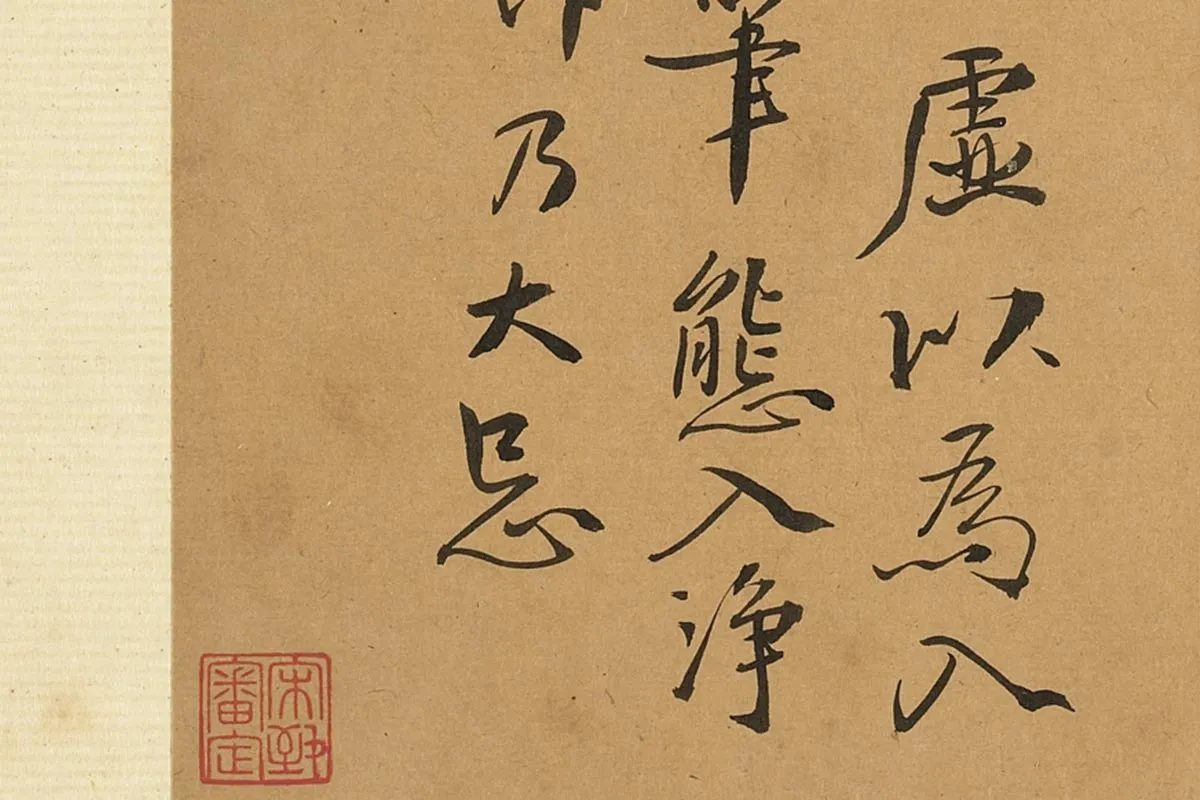 虛以為入
筆態入淨
乃大忌
宋致審定